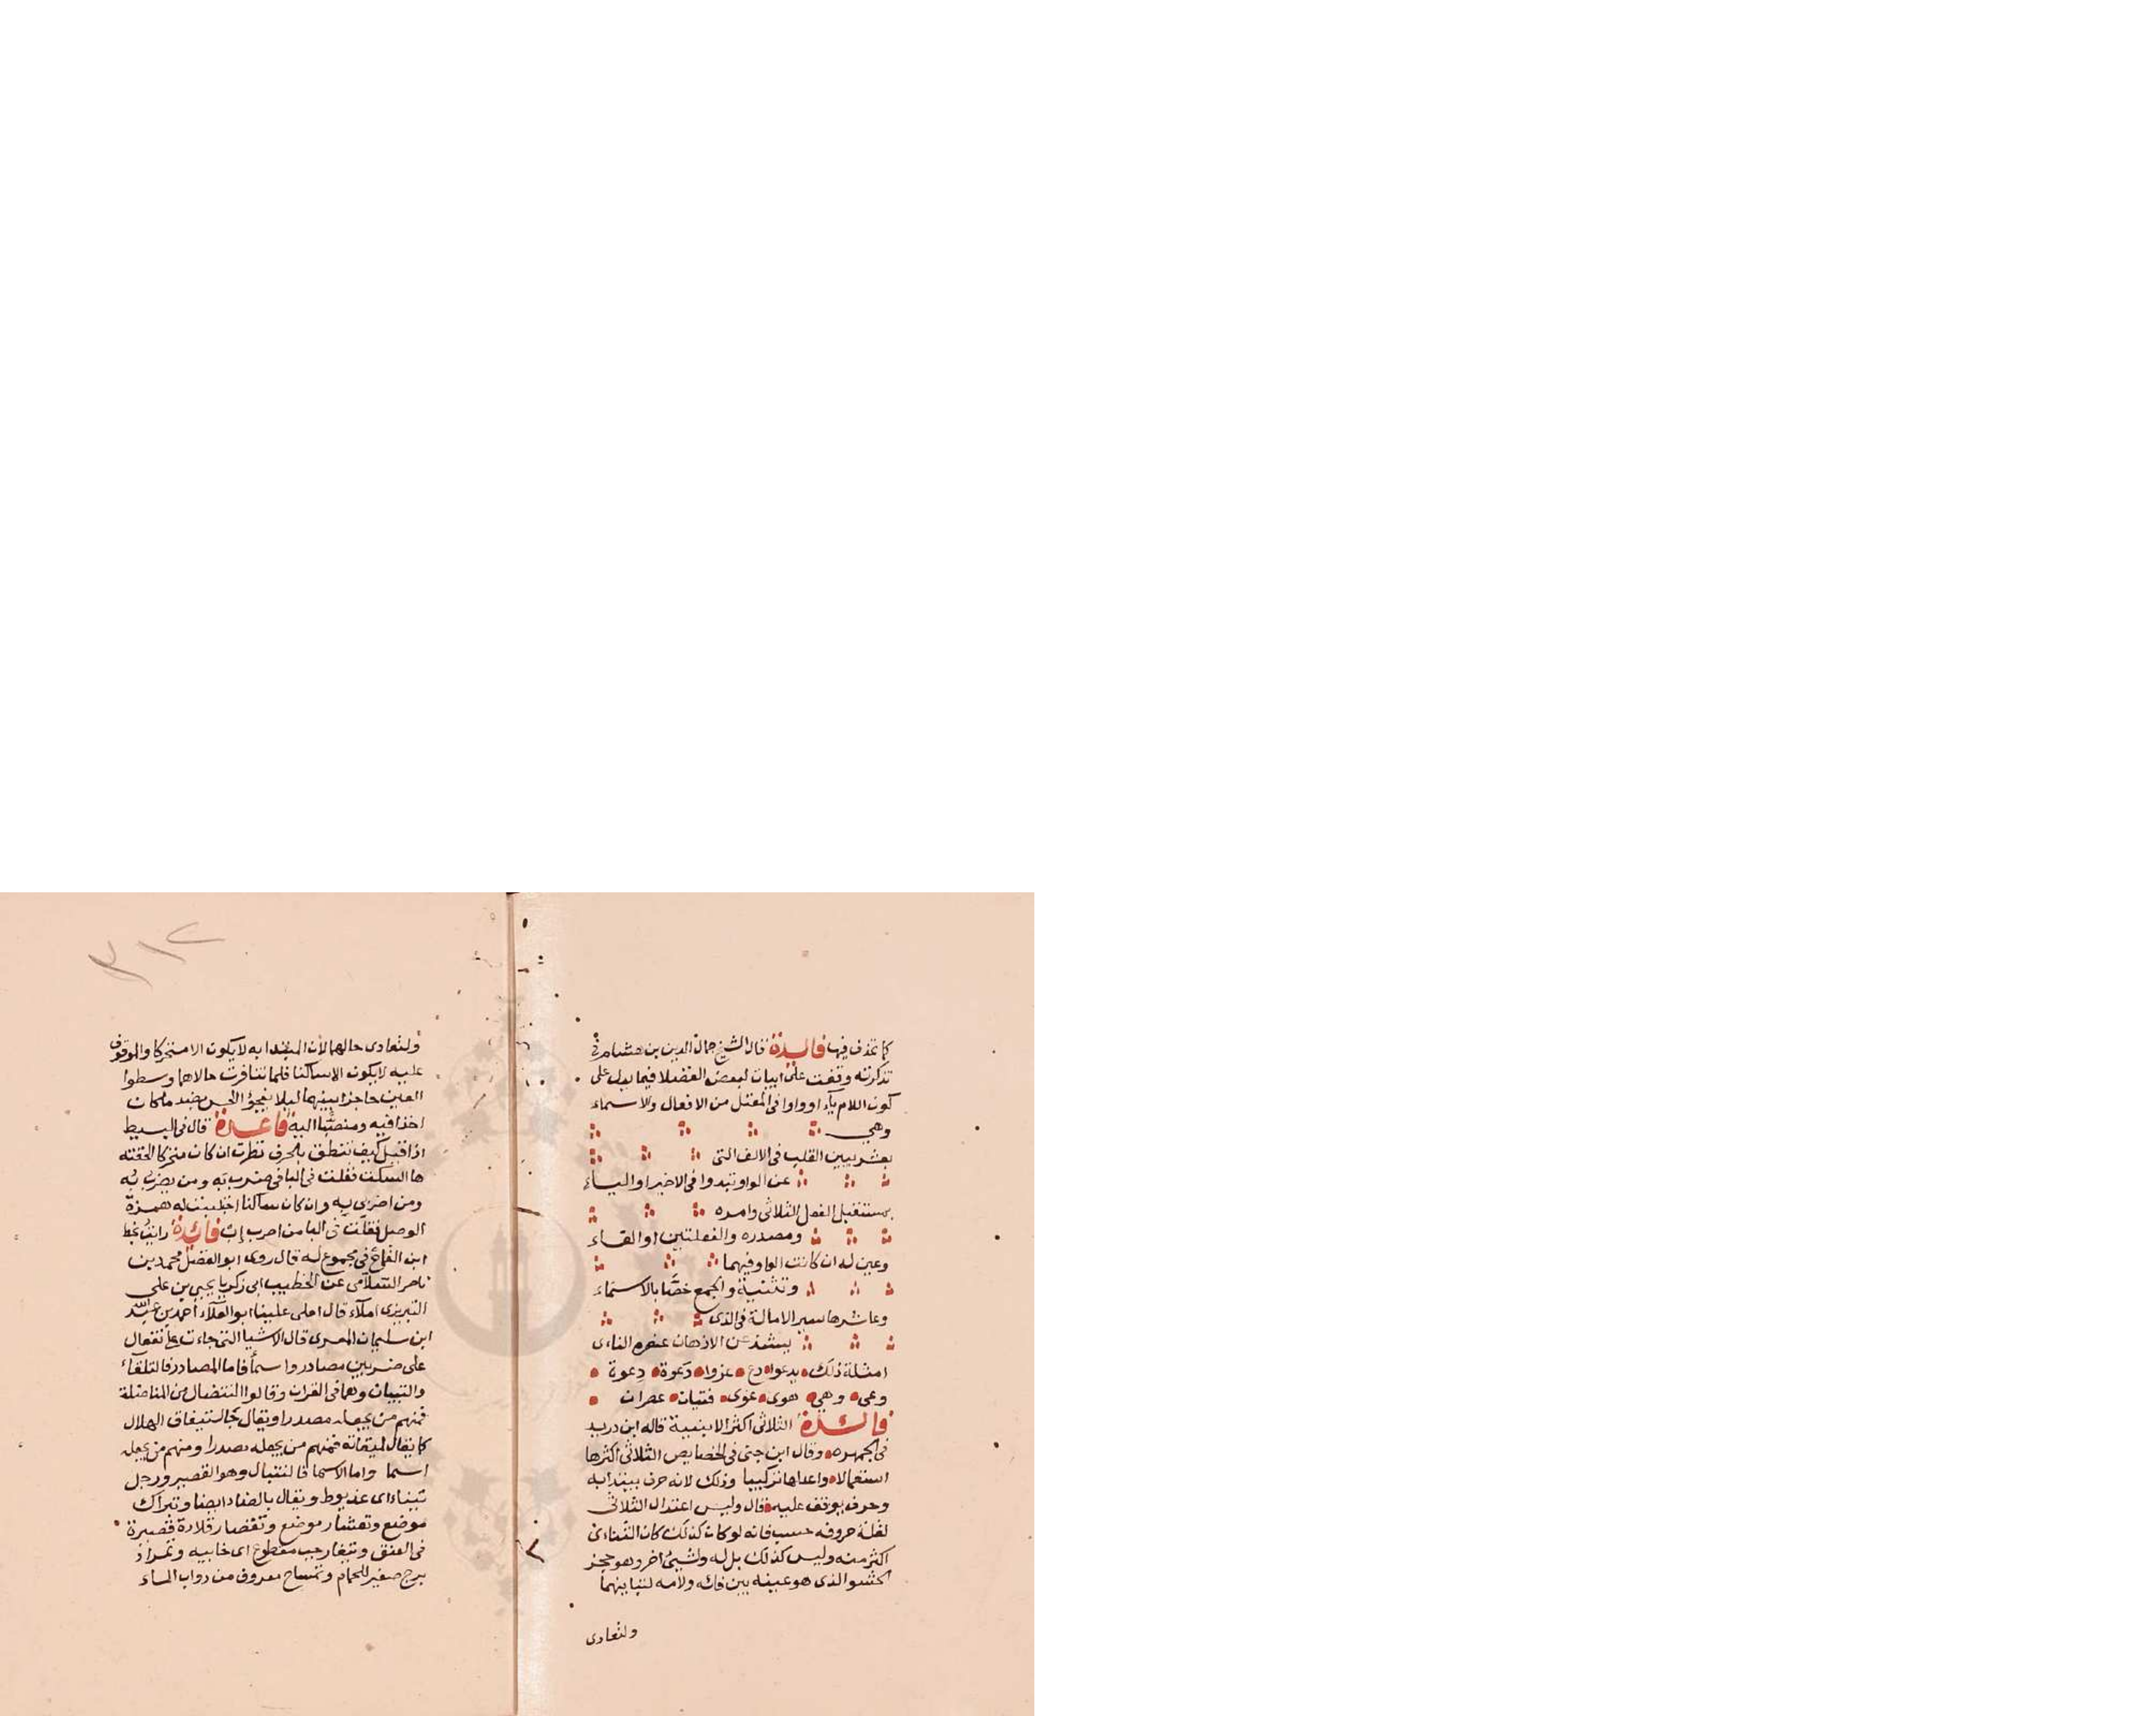 كما تحذف فيها فائدة قال الشيخ جمال الدين بن هشام في
تذكرته وقفت على ابيات لبعض الفضلا فيما يدل على
كون اللام ياء او واوا في المعتل من الافعال والاسماء
وهي
بعشر يبين القلب في الالف التي
عن الواو تبدوا في الاخير او الياء
بمستقبل الفعل الثلاثي وامره
ومصدره والفعلتين او الفاء
وعين له ان كانت الواو فيهما
وتثنية والجمع خصا بالاسماء
وعاشرها سير الامالة في الذي
يشذ عن الاذهان عنصره الناءى
امثلة ذلك يدعوا دع عزوا دَعوة دِعوة
وعى وهي هوى عوى فتيان عصران
فائدة الثلاثي اكثر الابنية قاله ابن دريد
في الجمهره وقال ابن جني في الخصايص الثلاثي اكثرها
استعمالا واعدلها تركيبا وذلك لانه حرف يبتدا به
وحرف يوقف عليه قال وليس اعتدال الثلاثي
لقلة حروفه حسب فانه لو كان كذلك كان الثناءى
اكثر منه وليس كذلك بل له ولشيئ اخر وهو حجز
الحشو الذى هو عينه بين فائه ولامه لتباينهما
ولتعادى
٣١٢
ولتعادى حالهما لان المبتدا به لا يكون الا متحركا والموقوف
عليه لا يكون الا ساكنا فلما تنافرت حالاهما وسطوا
العين حاجزا بينهما ليلا يفجؤ الحس بضد ما كان
اخذا فيه ومنصبا اليه قاعدة قال في البسيط
اذا قيل كيف تنطق بالحرف نظرت ان كان متحركا الحقته
ها السكت فقلت في البا في ضرب به ومن يضرب به
ومن اضرب به وان كان ساكنا اجتلبت له همزة
الوصل فقلت في البا من اضرب اب فائدة رايت بخط
ابن القماح في مجموع له قال روى ابو الفضل محمد بن
ناصر السلامى عن الخطيب ابى زكريا يحيى بن علي
التبريزى املاء قال املى علينا ابو العلاء احمد بن عبد الله
ابن سليمان المعرى قال الاشيا التي جاءت على تفعال
على ضربين مصادر واسما فاما المصادر فالتلقاء
والتبيان وهما في القران وقالوا التنضال من المناضلة
فمنهم من يجعله مصدرا ويقال جا لتيفاق الهلال
كما يقال لميقاته فمنهم من يجعله مصدرا ومنهم من يجعله
اسما واما الاسما فالتنبال وهو القصير ورجل
تيتاء اى عذيوط ويقال بالضاد ايضا وتبراك
موضع وتعشار موضع وتقصار قلادة قصيرة
في العنق وتيغار حب مقطوع اى خابيه وتمراد
برج صغير للحمام وتمساح معروف من دواب الماء